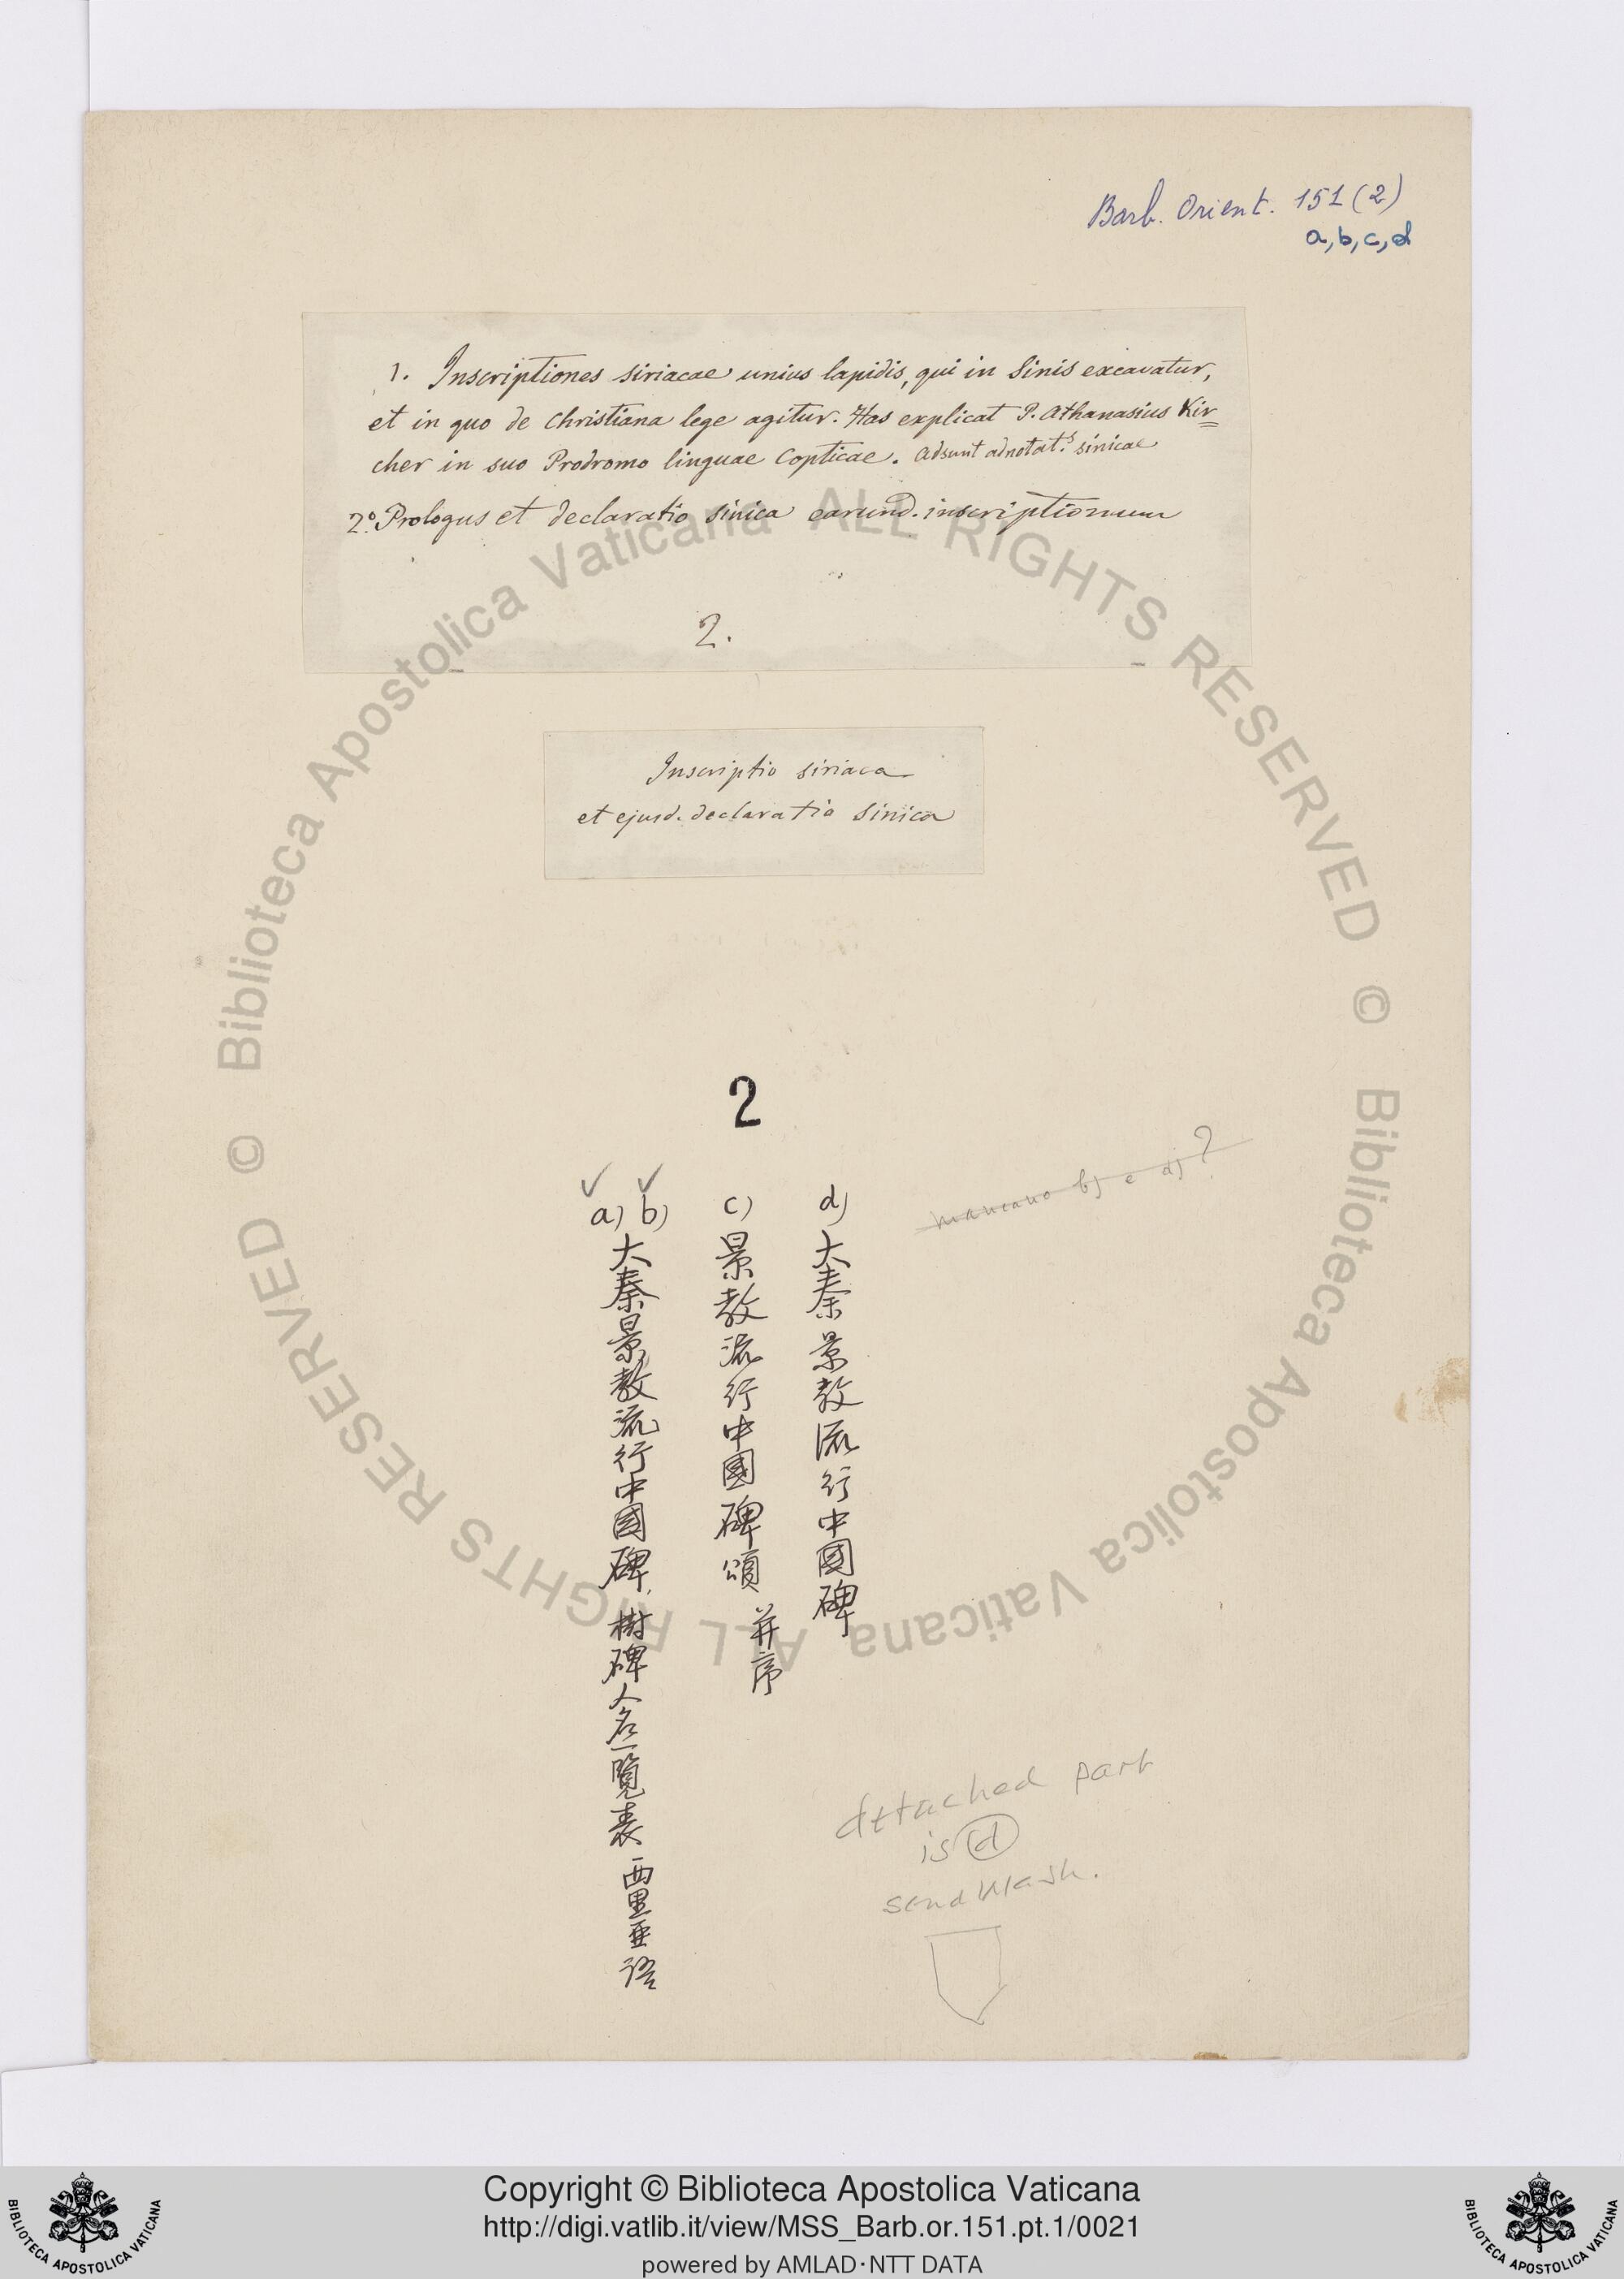 Barb. Orient. 151 (2)
a, b, c, d
1. Inscriptiones siriacae unius lapidis, qui in Sinis excavatur,
et in quo de Christiana lege agitur. Has explicat P. Athanasius Kir=
cher in suo Prodromo linguae Copticae. Adsunt adnotat.s sinicae
2.º Prologus et declaratio sinica earund. inscriptionum
2.
Inscriptio siriaca
et ejusd. declaratio sinica
2
mancano b) e d) ?
a) b)
大秦景教流行中國碑, 樹碑人名一覽表 西里亜语
c)
景教流行中國碑頌 并序
d)
大秦景教流行中國碑
detached part
is d
send Wash.
© Biblioteca Apostolica Vaticana ALL RIGHTS RESERVED
© Biblioteca Apostolica Vaticana ALL RIGHTS RESERVED
BIBLIOTECA APOSTOLICA VATICANA
Copyright © Biblioteca Apostolica Vaticana
http://digi.vatlib.it/view/MSS_Barb.or.151.pt.1/0021
powered by AMLAD・NTT DATA
BIBLIOTECA APOSTOLICA VATICANA